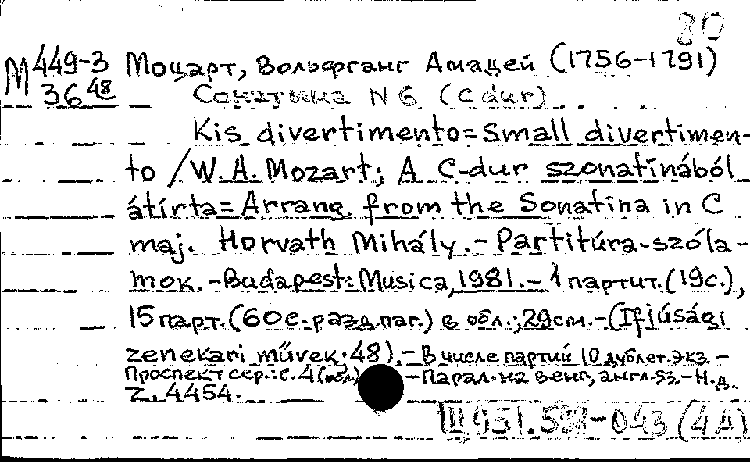 80
М 449-3 Моцарт, Вольфганг Амадей (1756-1791)
36 48 Сонатина N 6 (C dur)
Kis divertimento = Small divertimen-
to / W. A. Mozart; A C-dur szonatinából
átírta = Arrang. from the Sonatina in C
maj. Horvath Mihály. - Partitúra-szóla-
mok. - Budapest: Musica, 1981. - 1 партит. (19с.),
15 парт. (60с. разд. паг.) в обл.; 29см. - (Ifjúsági
zenekari művek; 48). - В числе партий 10 дублет. экз. -
Проспект сер.: с. 4 (обл.) - Парал. на венг., англ. яз. - Н. д.
Z. 4454.
Ш 951.5 -043 (4А)